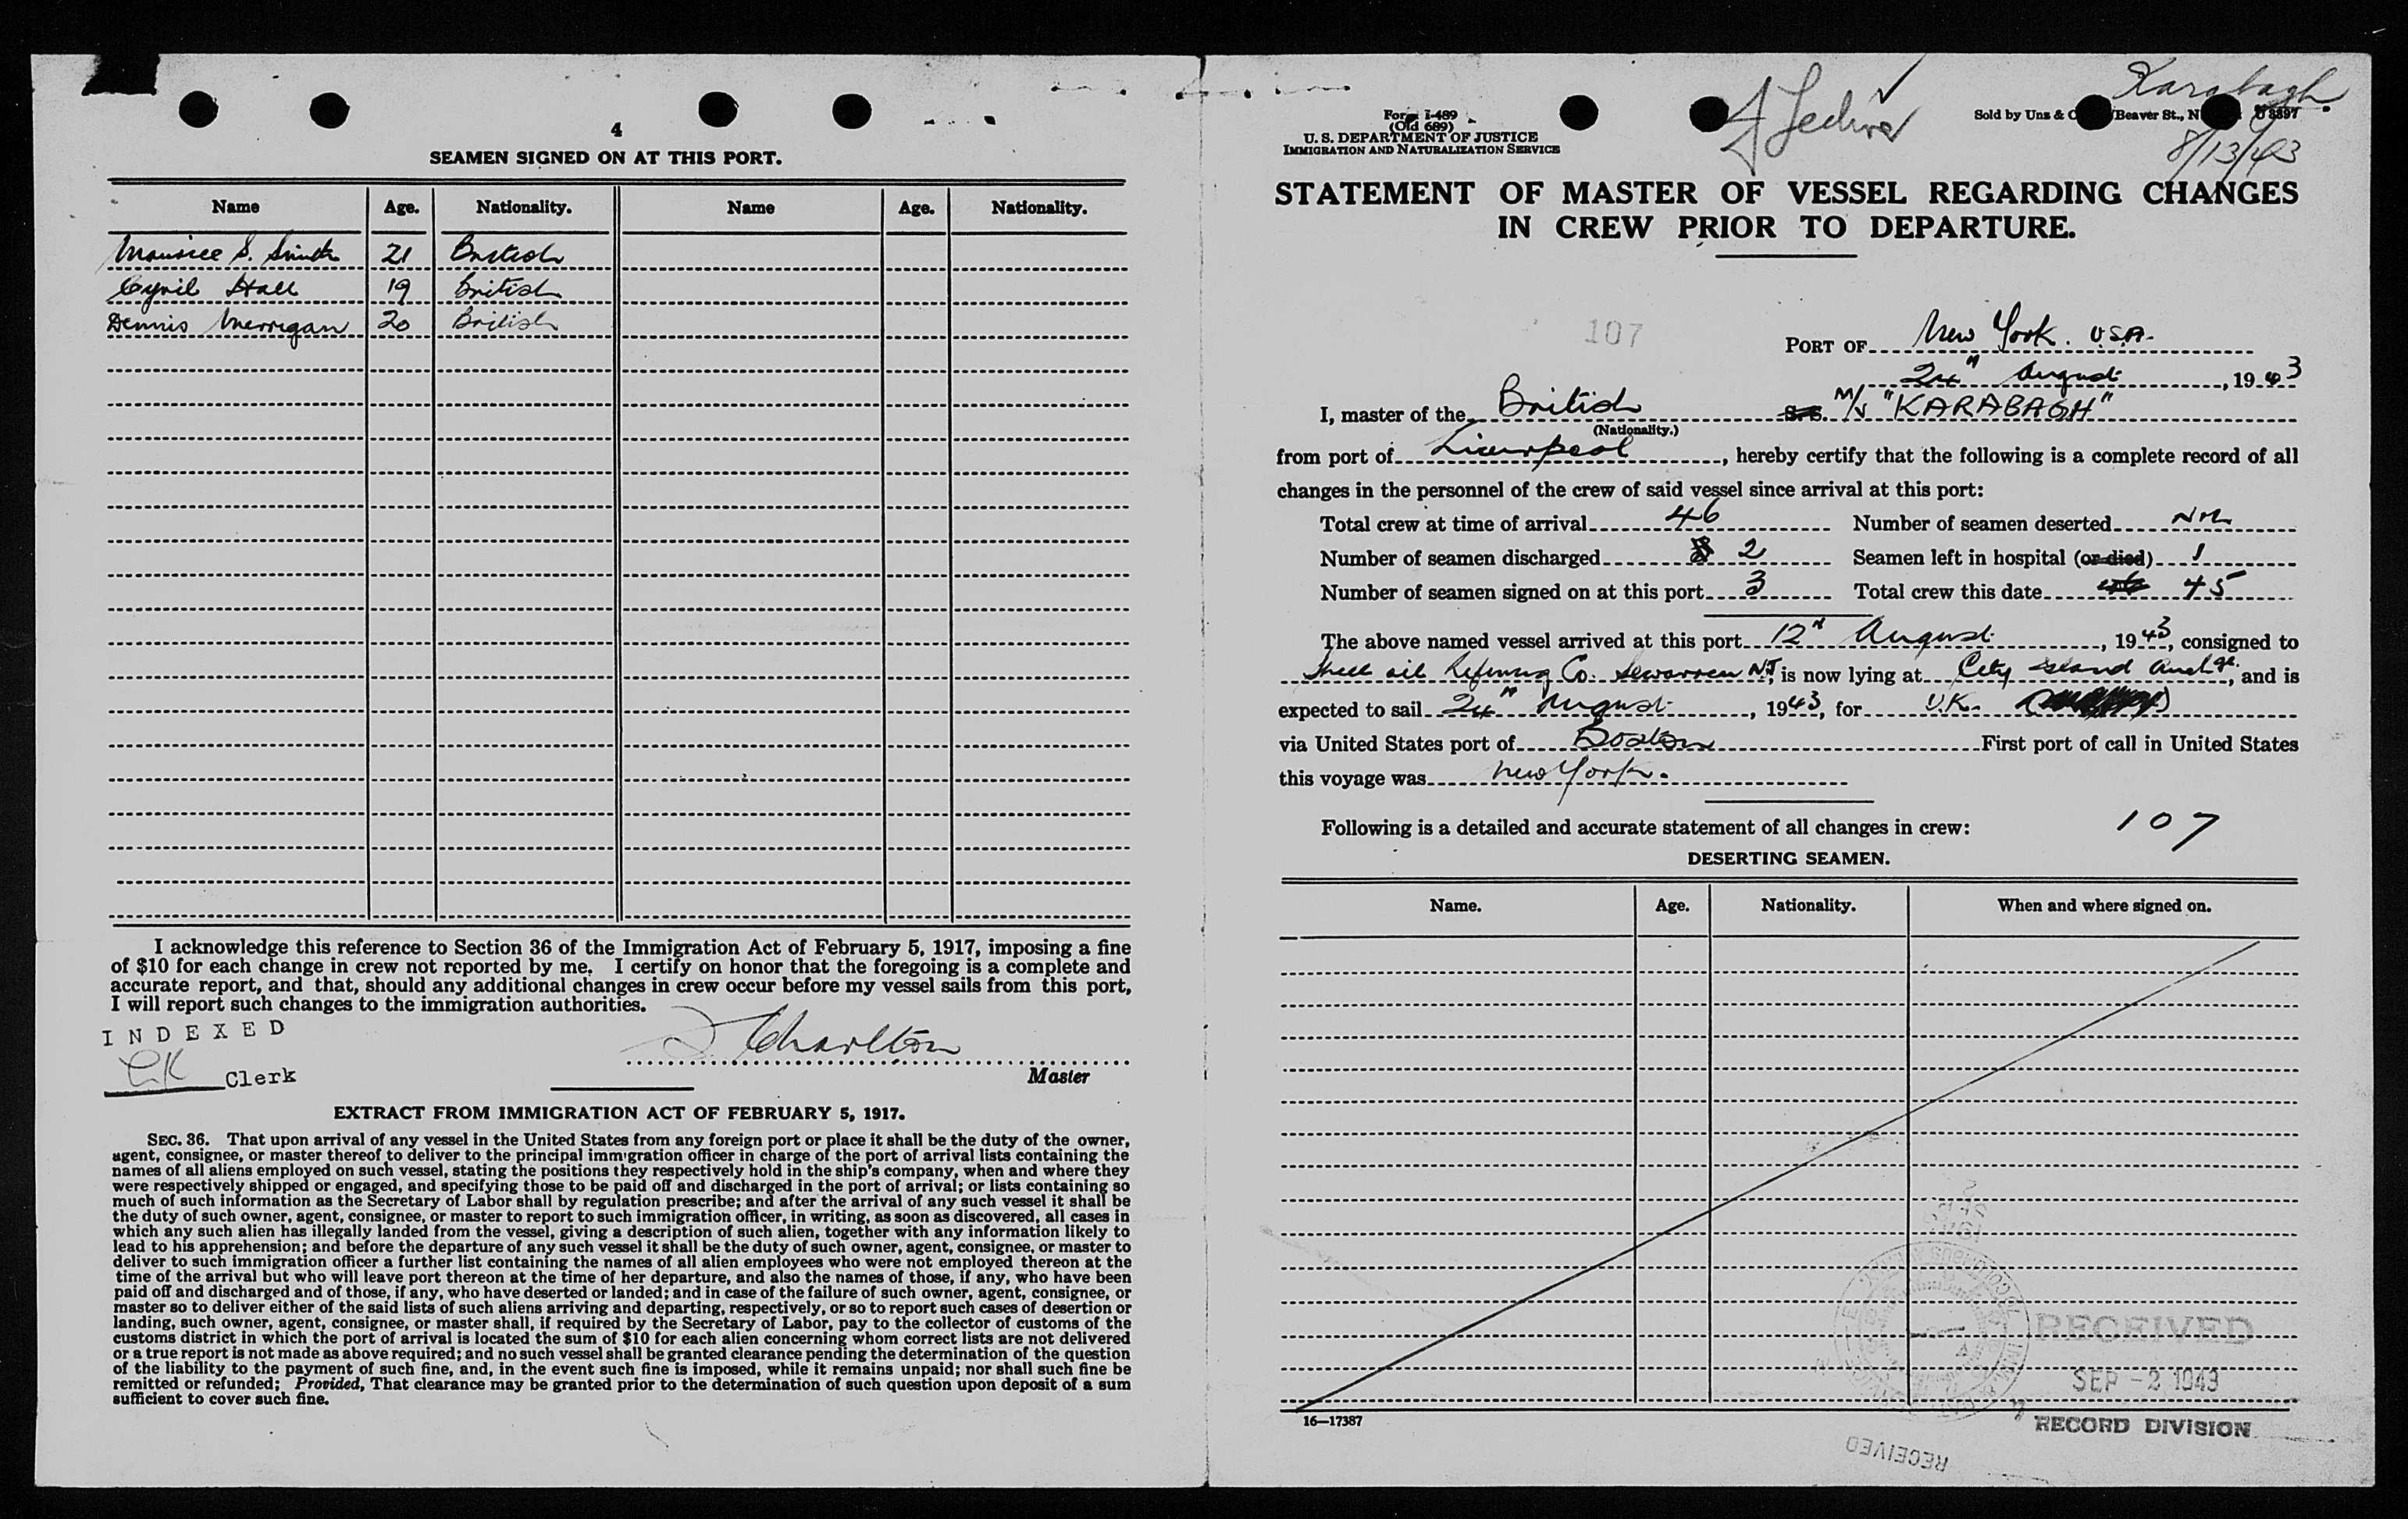 4
SEAMEN SIGNED ON AT THIS PORT.
Name Age. Nationality. Name Age. Nationality.
Maurice S. Smith 21 British
Cyril Hall 19 British
Dennis Merrigan 20 British
I acknowledge this reference to Section 36 of the Immigration Act of February 5, 1917, imposing a fine
of $10 for each change in crew not reported by me. I certify on honor that the foregoing is a complete and
accurate report, and that, should any additional changes in crew occur before my vessel sails from this port,
I will report such changes to the immigration authorities.
INDEXED
Clerk
Charlton
Master
EXTRACT FROM IMMIGRATION ACT OF FEBRUARY 5, 1917.
SEC. 36. That upon arrival of any vessel in the United States from any foreign port or place it shall be the duty of the owner,
agent, consignee, or master thereof to deliver to the principal immigration officer in charge of the port of arrival lists containing the
names of all aliens employed on such vessel, stating the positions they respectively hold in the ship's company, when and where they
were respectively shipped or engaged, and specifying those to be paid off and discharged in the port of arrival; or lists containing so
much of such information as the Secretary of Labor shall by regulation prescribe; and after the arrival of any such vessel it shall be
the duty of such owner, agent, consignee, or master to report to such immigration officer, in writing, as soon as discovered, all cases in
which any such alien has illegally landed from the vessel, giving a description of such alien, together with any information likely to
lead to his apprehension; and before the departure of any such vessel it shall be the duty of such owner, agent, consignee, or master to
deliver to such immigration officer a further list containing the names of all alien employees who were not employed thereon at the
time of the arrival but who will leave port thereon at the time of her departure, and also the names of those, if any, who have been
paid off and discharged and of those, if any, who have deserted or landed; and in case of the failure of such owner, agent, consignee, or
master so to deliver either of the said lists of such aliens arriving and departing, respectively, or so to report such cases of desertion or
landing, such owner, agent, consignee, or master shall, if required by the Secretary of Labor, pay to the collector of customs of the
customs district in which the port of arrival is located the sum of $10 for each alien concerning whom correct lists are not delivered
or a true report is not made as above required; and no such vessel shall be granted clearance pending the determination of the question
of the liability to the payment of such fine, and, in the event such fine is imposed, while it remains unpaid; nor shall such fine be
remitted or refunded; Provided, That clearance may be granted prior to the determination of such question upon deposit of a sum
sufficient to cover such fine.
Karabagh
8/13/43
Form I-489
(Old 689)
U. S. DEPARTMENT OF JUSTICE
IMMIGRATION AND NATURALIZATION SERVICE
Sold by Unz & C Beaver St., N
STATEMENT OF MASTER OF VESSEL REGARDING CHANGES
IN CREW PRIOR TO DEPARTURE.
107
PORT OF New York. U.S.A.
24" August, 1943
I, master of the British S. S. M/V "KARABAGH"
(Nationality.)
from port of Liverpool, hereby certify that the following is a complete record of all
changes in the personnel of the crew of said vessel since arrival at this port:
Total crew at time of arrival 46 Number of seamen deserted Nil
Number of seamen discharged 2 Seamen left in hospital (or died) 1
Number of seamen signed on at this port 3 Total crew this date 45
The above named vessel arrived at this port 12" August, 1943, consigned to
Shell oil Refining Co. Sewarren NJ, is now lying at City Island Anchge., and is
expected to sail 24" August, 1943, for U.K.
via United States port of Boston First port of call in United States
this voyage was New York.
Following is a detailed and accurate statement of all changes in crew:
107
DESERTING SEAMEN.
Name. Age. Nationality. When and where signed on.
RECEIVED
SEP -2 1943
RECORD DIVISION
16—17387
RECEIVED